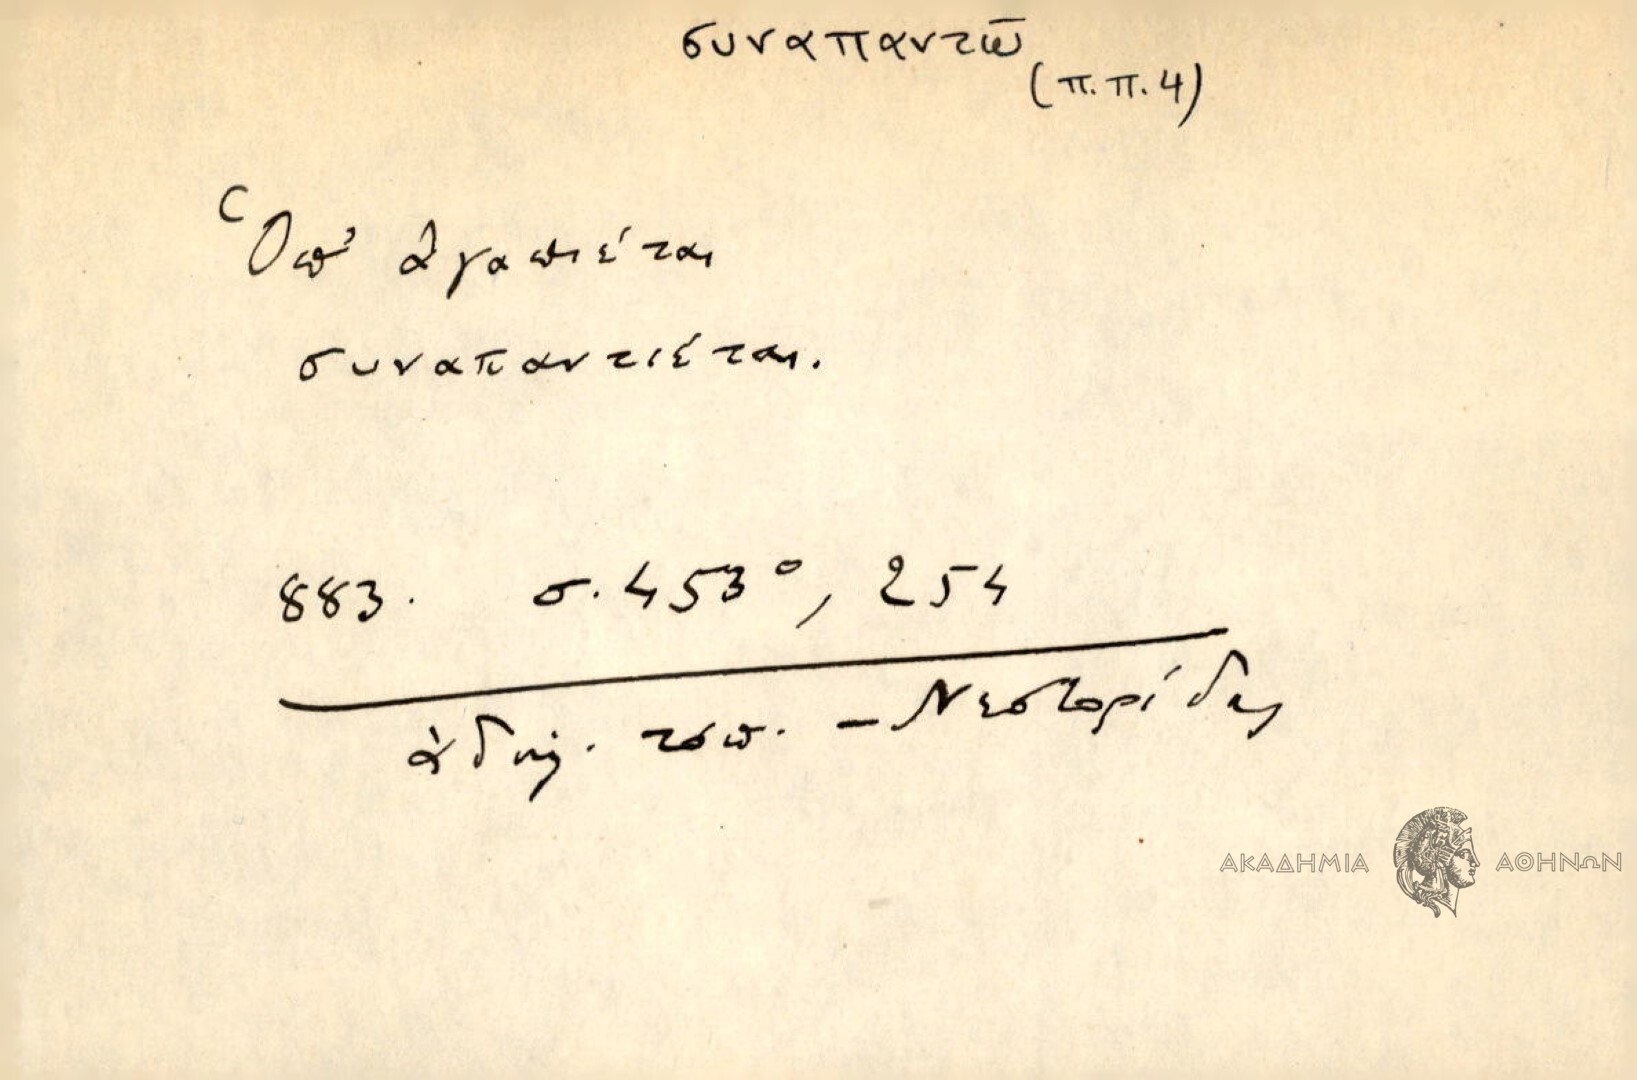 συναπαντῶ
(π.π.4)
Ὁπ' ἀγαπιέται
συναπαντιέται.
883. σ. 453°, 254
ἀδημ. τόπ. - Νεστορίδης
ΑΚΑΔΗΜΙΑ ΑΘΗΝΩΝ